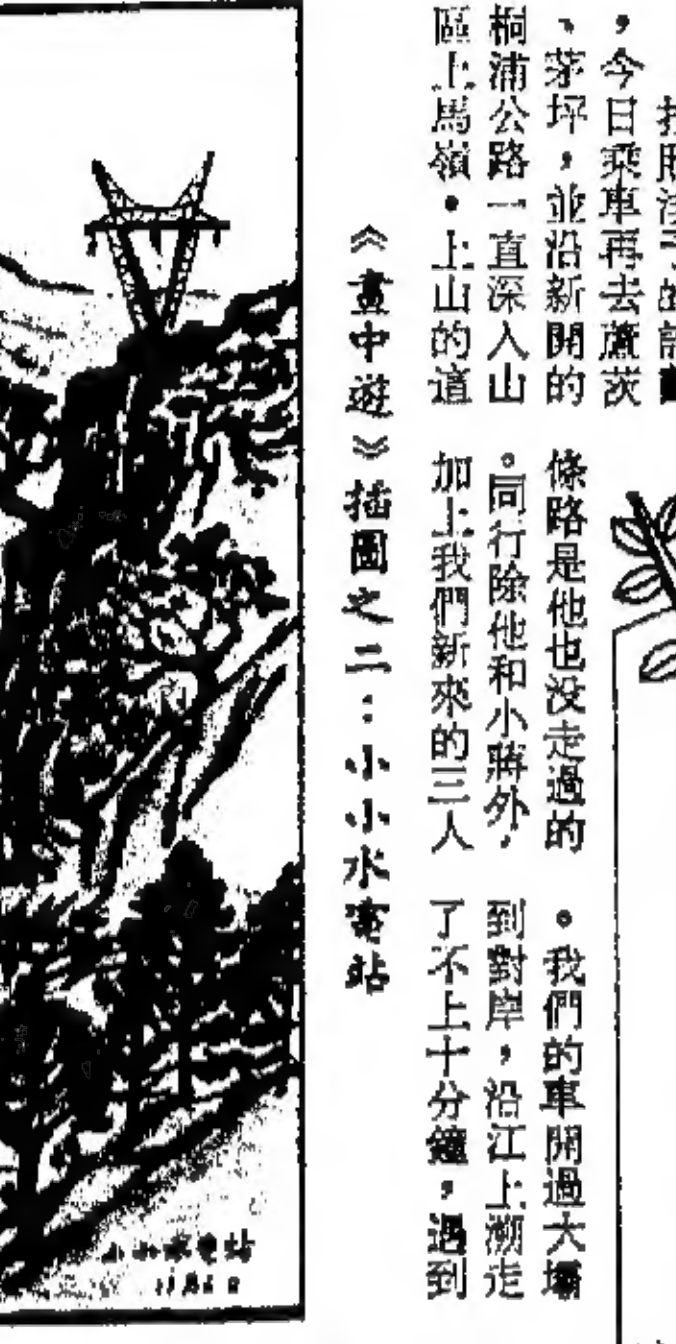 ，今日乘車再去蘆茨
、茅坪，並沿新開的
桐浦公路一直深入山
區上馬嶺。上山的道
條路是他也没走過的
。同行除他和小蔣外，
加上我們新來的三人
。我們的車開過大壩
到對岸，沿江上溯走
了不上十分鐘，遇到
《畫中遊》插圖之二：小小水電站
小小水電站